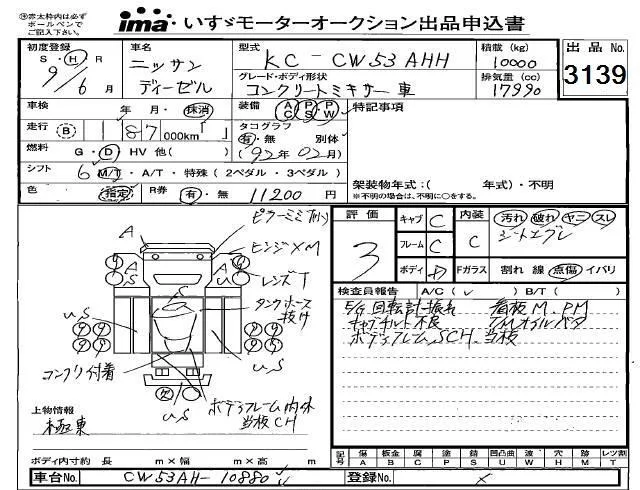 ㊟赤太枠内は必ず
ボールペンで
ご記入下さい。
ima・いすゞモーターオークション出品申込書
初度登録 S・H・R 9年 6月
車名 ニッサン ディーゼル
型式 KC-CW53AHH
グレード・ボディ形状 コンクリートミキサー車
積載(kg) 10000
排気量(cc) 17990
出品No. 3139
車検 年 月・抹消
装備 AC PS PW
特記事項
走行 B 187 000km
タコグラフ 有・無 別体
(92年02月)
燃料 G・D HV 他( )
シフト 6 M/T・A/T・特殊(2ペダル・3ペダル)
架装物年式:( 年式)・不明
※不明の場合は、不明に○をする。
色 指定 R券 有・無 11200円
評価 3
キャブ C
フレーム C
ボディ D
内装 C
汚れ 破れ ヤニ スレ
シートエグレ
Fガラス 割れ 線 点傷 イバリ
検査員報告 A/C( ) B/T( )
E/G回転計振れ 看板M.PM
キャブチルト不良 T/Mオイルバタ
ボディフレームSCH.当板
A
ヒンジ×M
レンズT
タンクホース
抜け
U.S
U.S
コンクリ付着
U.S
ボディフレーム内外
当板CH
欠
上物情報
極東
ボディ内寸約 長 m×幅 m×高 m
記号 傷A 板金B 腐C 塗P 錆S 凹凸曲U 波W 穴H 換M レツ割T
車台No. CW53AH-10880
登録No. ×